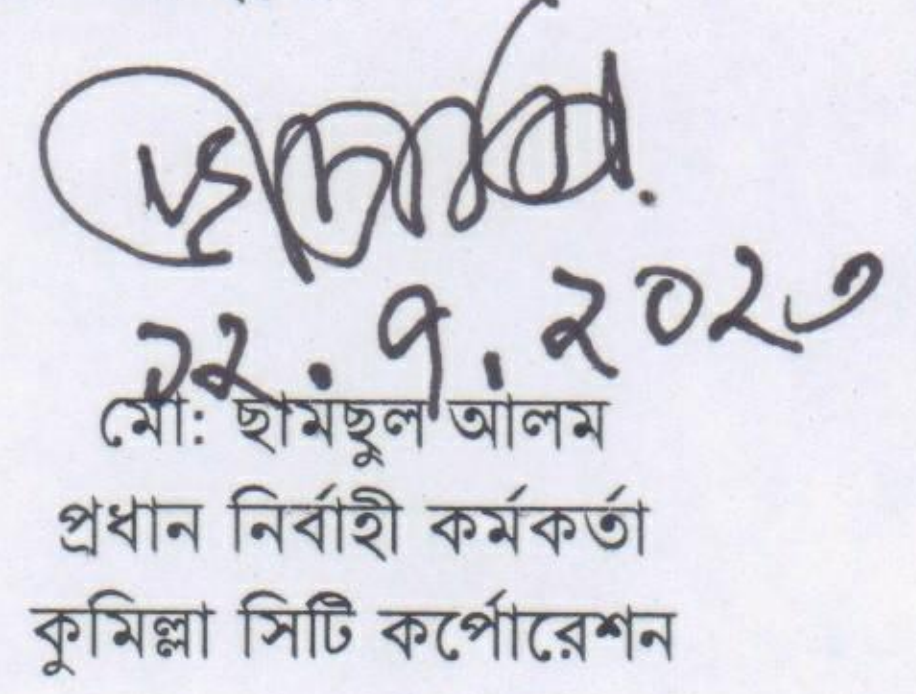 ১২.৭.২০২৩
মো: ছামছুল আলম
প্রধান নির্বাহী কর্মকর্তা
কুমিল্লা সিটি কর্পোরেশন